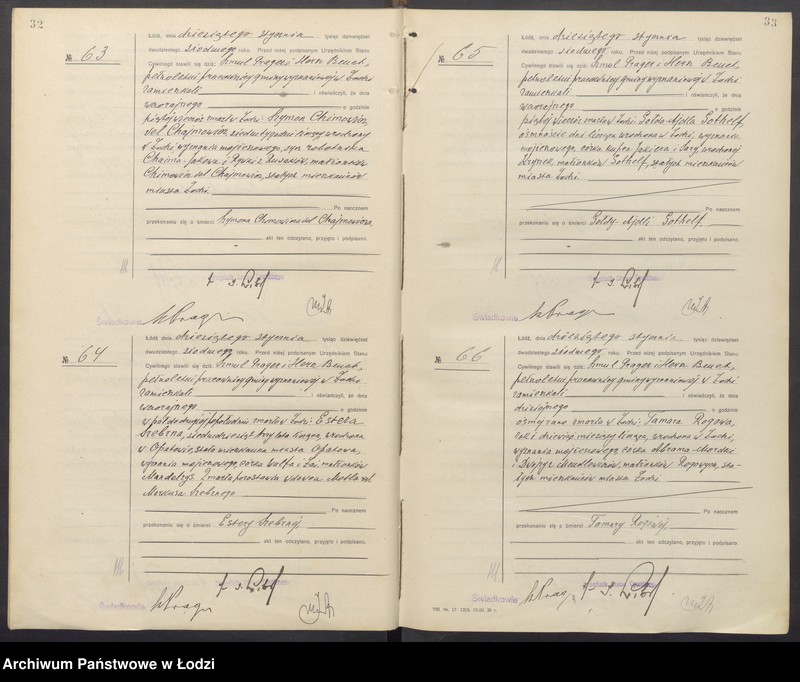 32
№ 63
Łódź, dnia dziesiątego stycznia tysiąc dziewięćset
dwudziestego siódmego roku. Przed niżej podpisanym Urzędnikiem Stanu
Cywilnego stawili się dziś: Szmul Prager i Hersz Beuet,
pełnoletni pracownicy gminy wyznaniowej w Łodzi
zamieszkali i oświadczyli, że dnia
wczorajszego o godzinie
piątej wieczór zmarł w Łodzi: Szymon Chimowicz
vel Chajmowicz, siedem tygodni liczący, urodzony
w Łodzi, wyznania mojżeszowego, syn robotnika
Chaima-Jakowa i Rywki z Rusaków, małżonków
Chimowicz vel Chajmowicz, stałych mieszkańców
miasta Łodzi.
Po naocznem
przekonaniu się o śmierci Szymona Chimowicza vel Chajmowicza
akt ten odczytano, przyjęto i podpisano.
Świadkowie
№ 64
Łódź, dnia dziesiątego stycznia tysiąc dziewięćset
dwudziestego siódmego roku. Przed niżej podpisanym Urzędnikiem Stanu
Cywilnego stawili się dziś: Szmul Prager i Hersz Beuet,
pełnoletni pracownicy gminy wyznaniowej w Łodzi
zamieszkali i oświadczyli, że dnia
wczorajszego o godzinie
w pół do drugiej popołudniu zmarła w Łodzi: Estera
Srebrna, siedemdziesiąt trzy lata licząca, urodzona
w Opatowie, stała mieszkanka miasta Opatowa,
wyznania mojżeszowego, córka Wulfa i małżonków
Mandelzys. Zmarła pozostawiła wdowca Motla vel
Srebrnego
Po naocznem
przekonaniu się o śmierci Estery Srebrnej
akt ten odczytano, przyjęto i podpisano.
Świadkowie
33
№ 65
Łódź, dnia dziesiątego stycznia tysiąc dziewięćset
dwudziestego siódmego roku. Przed niżej podpisanym Urzędnikiem Stanu
Cywilnego stawili się dziś: Szmul Prager i Hersz Beuet,
pełnoletni pracownicy gminy wyznaniowej w Łodzi
zamieszkali i oświadczyli, że dnia
wczorajszego o godzinie
piątej wieczór zmarła w Łodzi: Gołda-Ajdla Gothelf,
ośmnaście dni licząca, urodzona w Łodzi, wyznania
mojżeszowego, córka kupca i Sary, urodzonej
małżonków Gothelf, stałych mieszkańców
miasta Łodzi.
Po naocznem
przekonaniu się o śmierci Gołdy-Ajdli Gothelf.
akt ten odczytano, przyjęto i podpisano.
Świadkowie
№ 66
Łódź, dnia dziesiątego stycznia tysiąc dziewięćset
dwudziestego siódmego roku. Przed niżej podpisanym Urzędnikiem Stanu
Cywilnego stawili się dziś: Szmul Prager i Hersz Beuet,
pełnoletni pracownicy gminy wyznaniowej w Łodzi
zamieszkali i oświadczyli, że dnia
dzisiejszego o godzinie
ósmej rano zmarła w Łodzi: Tamara Rogowa,
rok i dziewięć miesięcy licząca, urodzona w Łodzi,
wyznania mojżeszowego, córka Abrama-Mordki
i Dwojry małżonków Rogowych, sta-
łych mieszkańców miasta Łodzi
Po naocznem
przekonaniu się o śmierci Tamary Rogowej.
akt ten odczytano, przyjęto i podpisano.
Świadkowie
Archiwum Państwowe w Łodzi